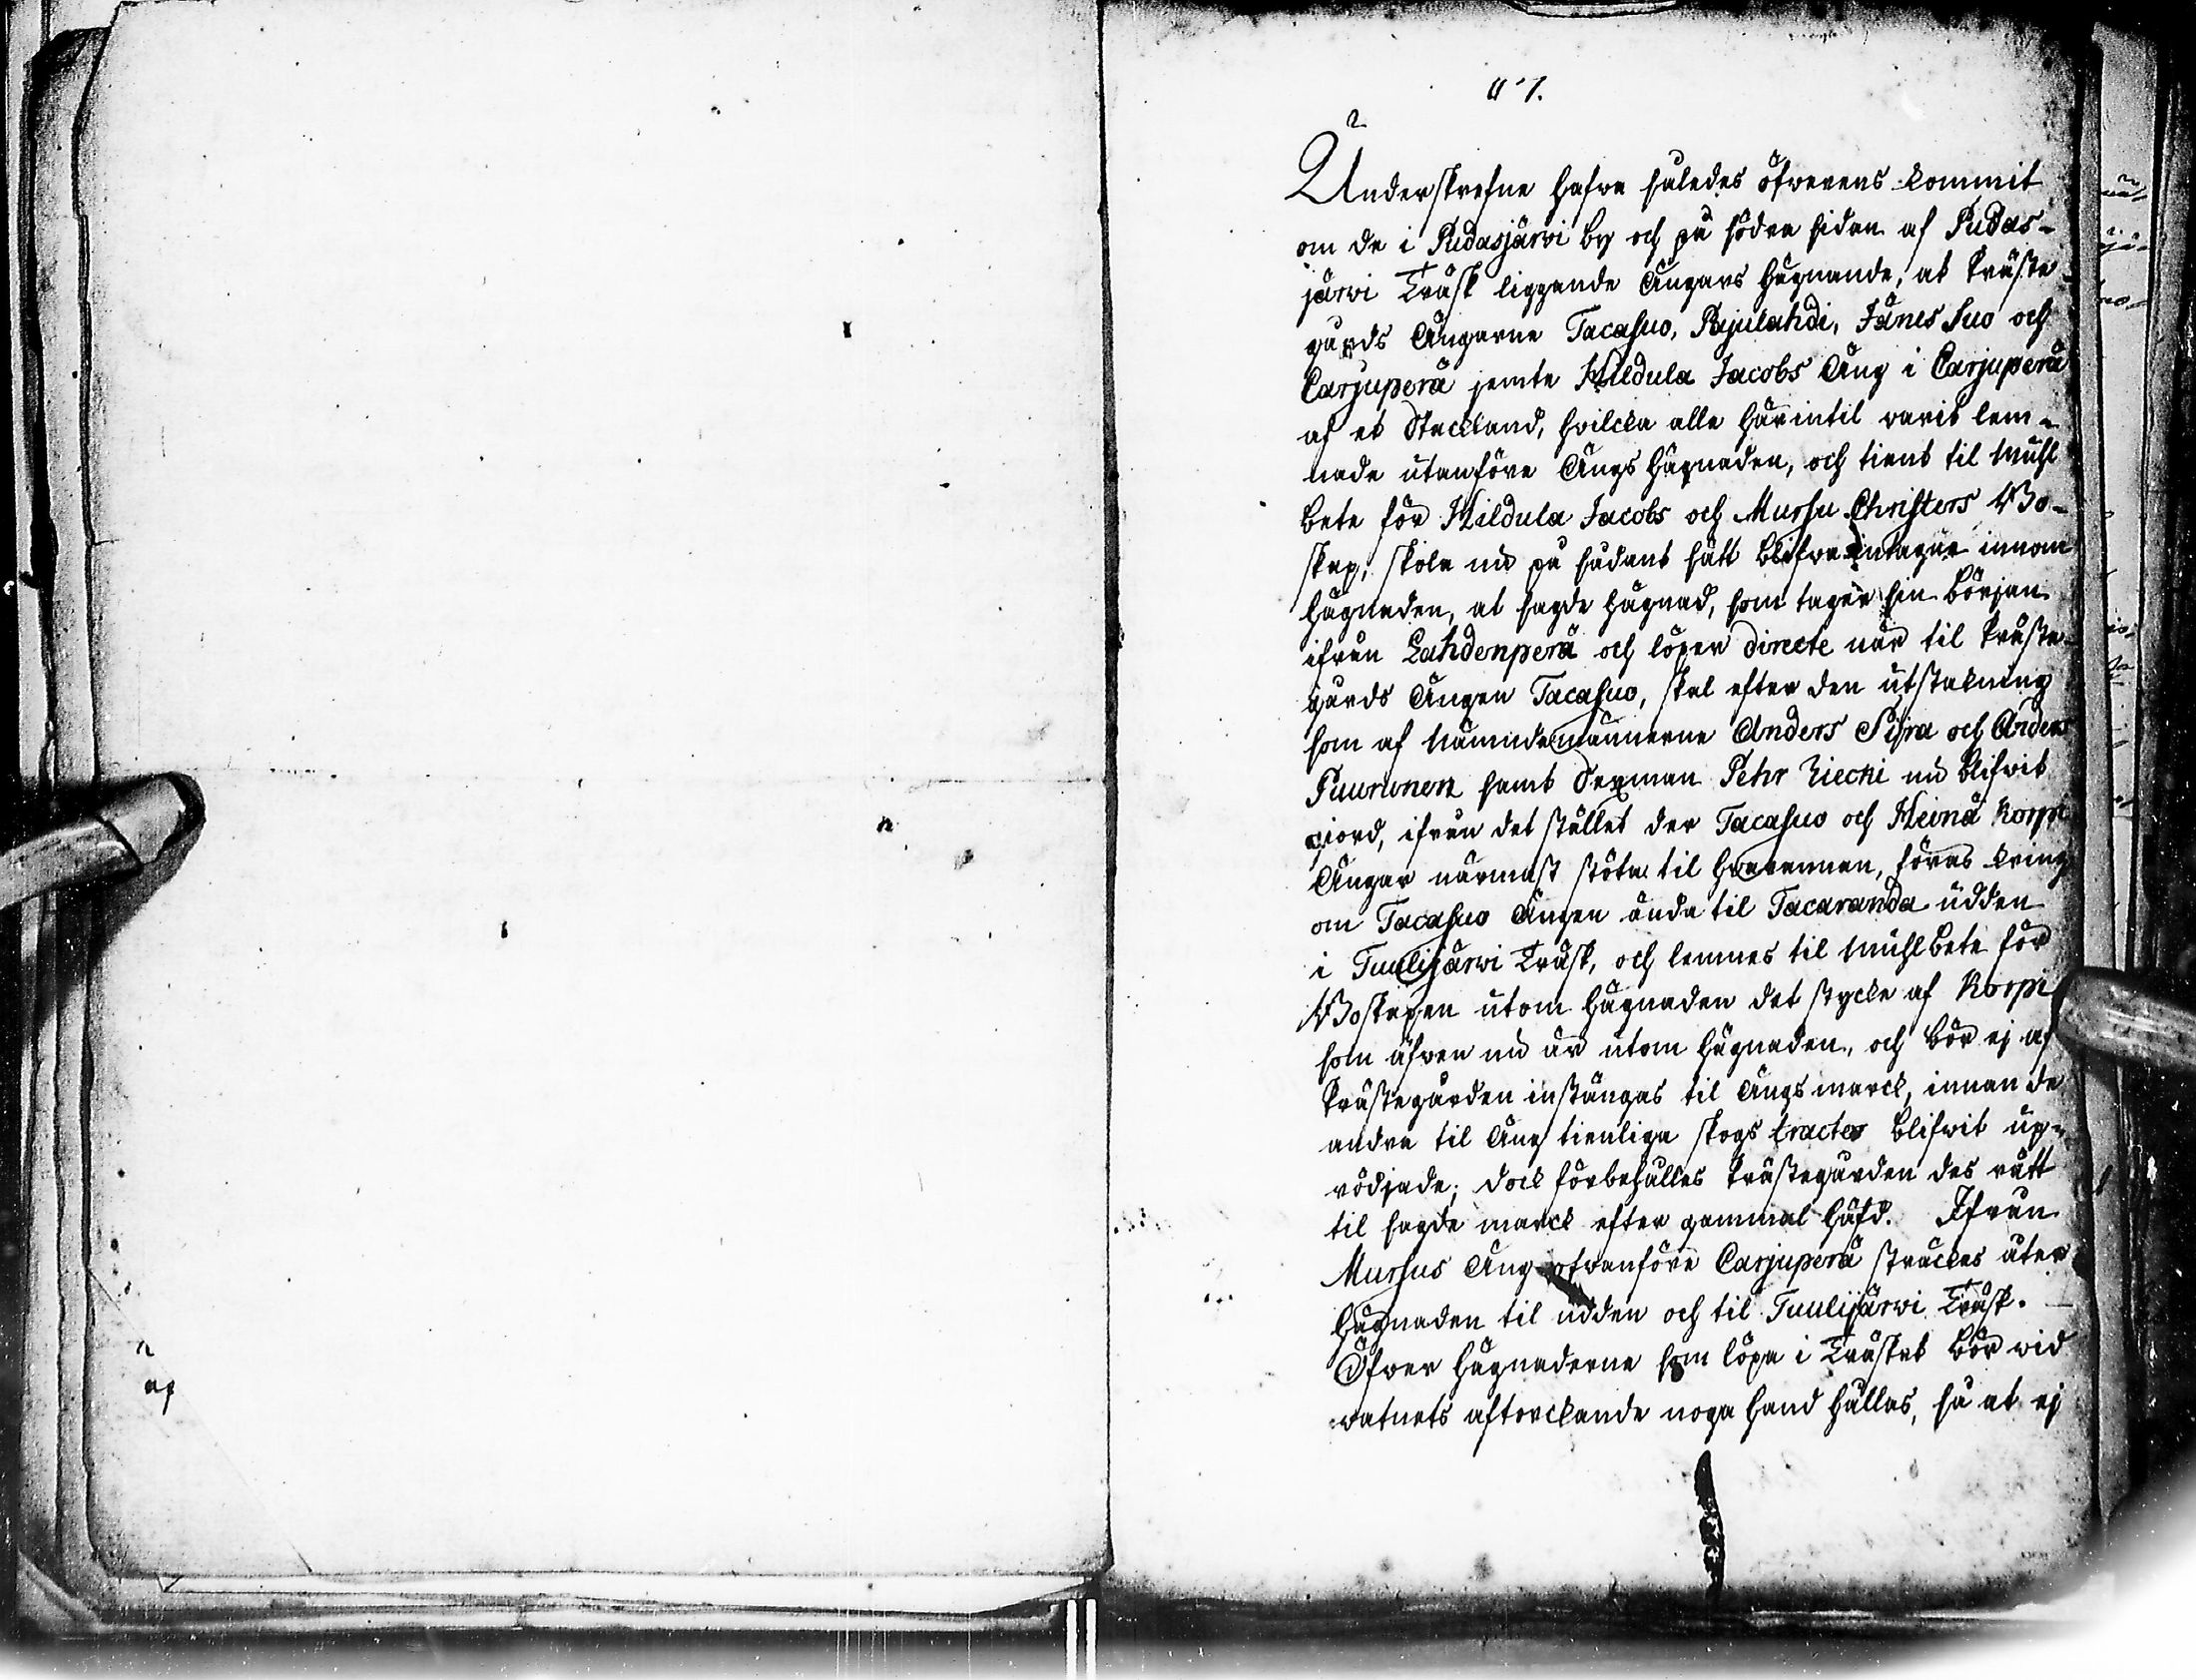 Underskrefne hafwa således öfwerens kommit
om de i Pudasjärwi by och på södra sidan af Pudas-
järwi Träsk liggande Ängars hägnande, at Präste-
gårds Ängarne Tacasuo, Pajulahdi, Jänes Suo och
Carjuperä jemte Hildula Jacobs Äng i Carjuperä
af et Stackland, hvilcka alle härintil warit lem-
nade utanföre Ängs hägnaden, och tient til Muhl
bete för Hildula Jacobs och Mursu Christers Bo-
skap, skola nu på sådant sätt blifwa intagne innom
hägnaden, at sagde hägnad, som tager sin början
ifrån Lahdenperä och löper directe när til Präste-
gårds Ängen Tacasuo, skal efter den utstakning
som af Nämndemännerne Anders Sijra och Anders
Puurunen samt Sexman Pehr Riecki nu blifwit
giord, ifrån det stället der Tacasuo och Heinä Korpi
Ängar närmast stöta til hwarannan, föras kring
om Tacasuo Ängen ända til Tacaranda udden
i Tuulijärwi Träsk, och lemnes til Muhlbete för
Boskapen utom hägnaden det stycke af Korpi
som äfwen nu är utom hägnaden, och bör ej af
Prästegården instängas til Ängsmarck, innan de
andra til Äng tienliga skogs tracter blifwit up-
rödjade; dock förbehålles Prästegården des rätt
til sagde marck efter gammal häfd. Ifrån
Mursus Äng ofwanföre Carjuperä sträckes åter
hägnaden til udden och til Tuulijärwi Träsk.
Öfwer hägnaderne som löpa i Träsket bör wid
watnets aftorckande noga hand hållas, så at ej